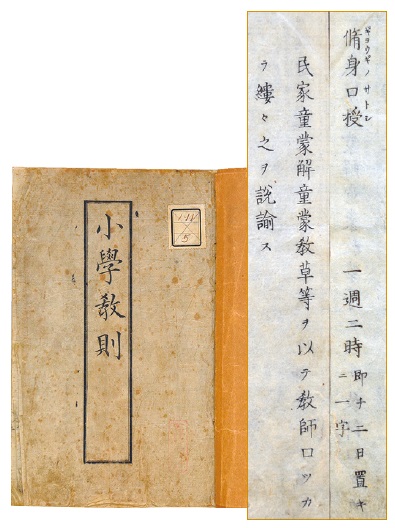 脩身口授 一週二時 即チ二日置キ
ギヨウギノサトシ
ニ一字
民家童蒙解童蒙教草等ヲ以テ教師口ツカ
ラ縷々之ヲ説諭ス
小學教則